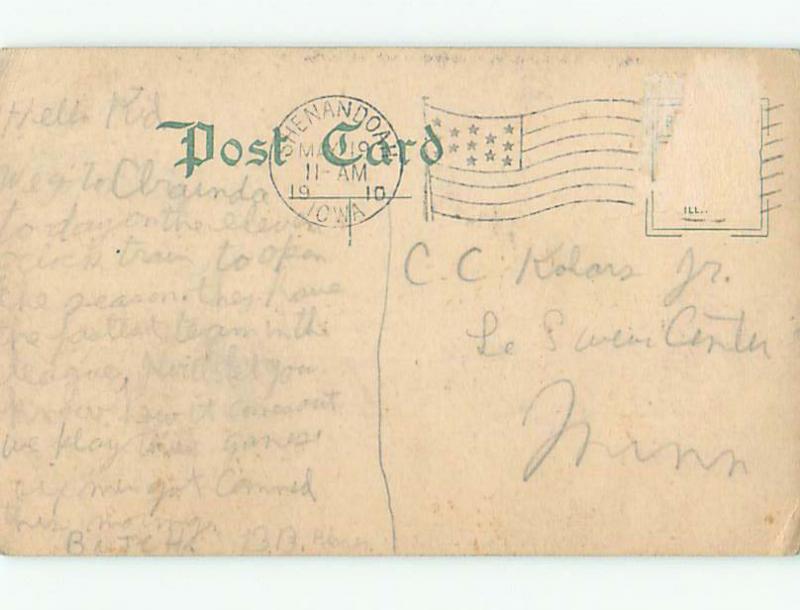 Post Card
SHENANDOAH
MAY 19
11-AM
1910
IOWA
ILL.
Hello Kid
We go to Clarinda
today on the eleven
oclock train, to open
the season. they have
the fastest team in the
league, I will let you
know how it comes out
We play three games
six men got canned
this morning.
BUTCH B.B.
C C Kolars Jr.
Le Sueur Center
Minn